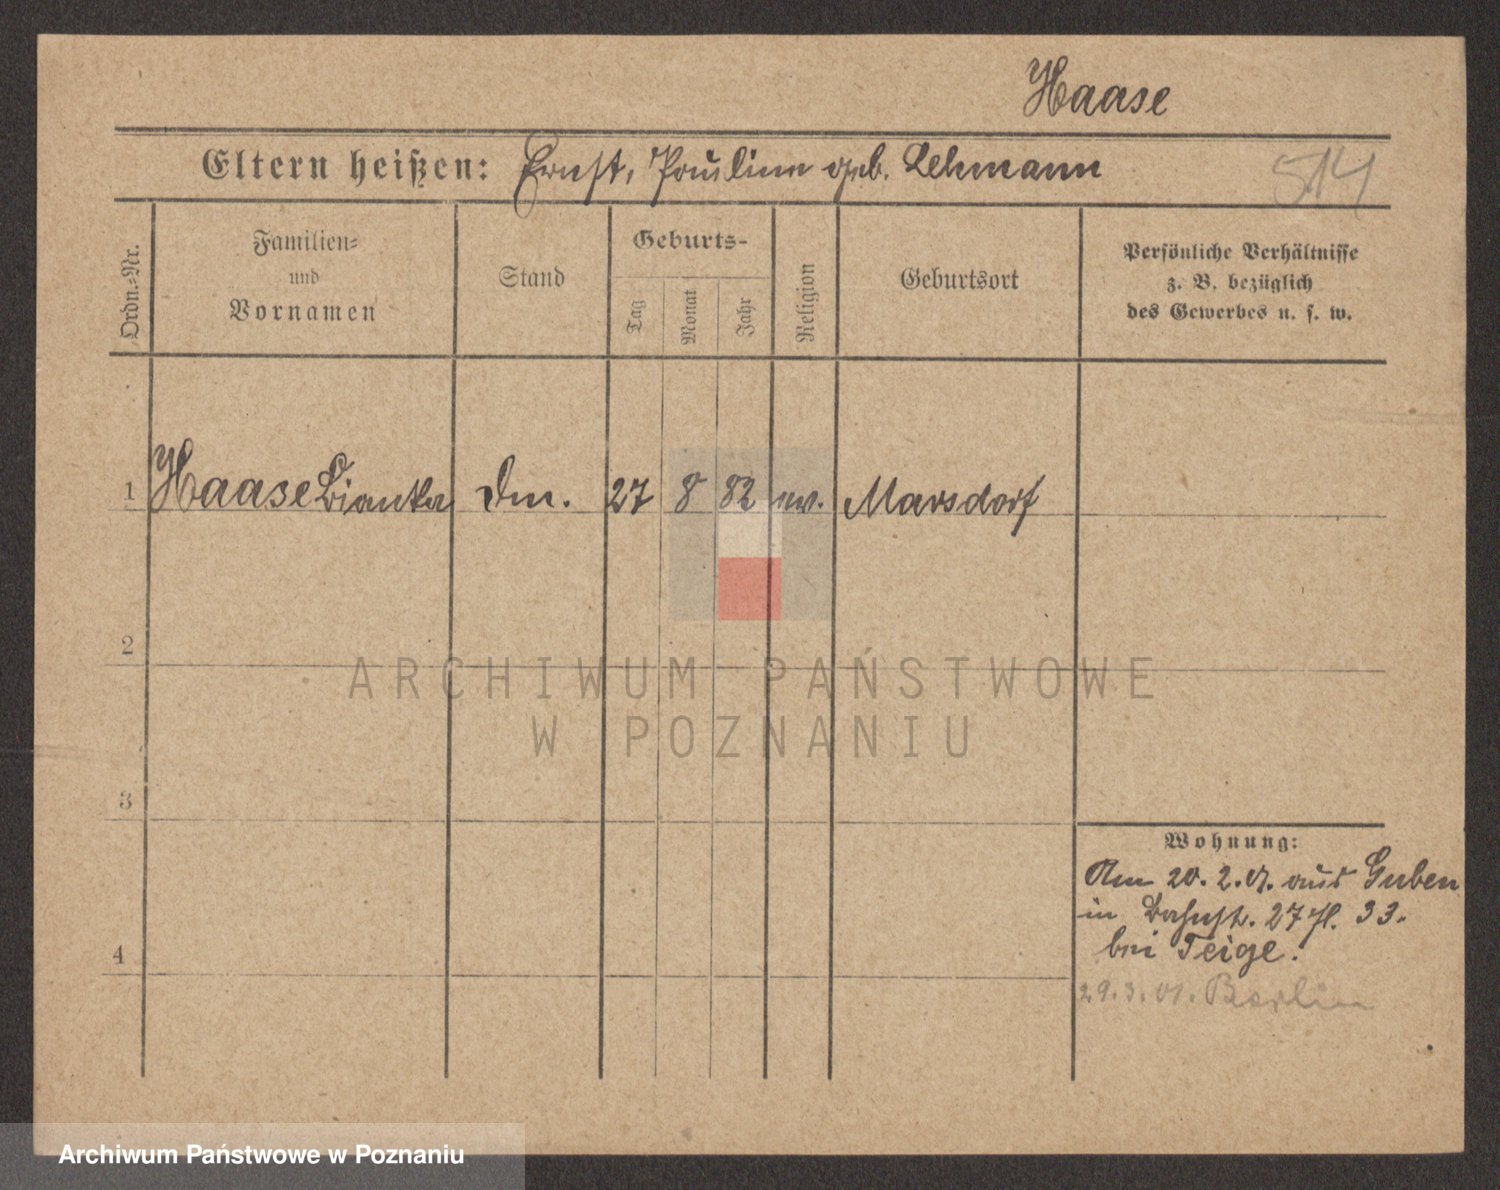 Haase
Eltern heißen: Ernst, Pauline geb. Lehmann
514
Ordn.-Nr.
Familien- und Vornamen
Stand
Geburts-
Tag
Monat
Jahr
Religion
Geburtsort
Persönliche Verhältnisse
z. B. bezüglich
des Gewerbes u. s. w.
1 Haase Bianka 27 8 82 ev. Marsdorf
2
ARCHIWUM PAŃSTWOWE
W POZNANIU
3
Wohnung:
Am 20. 2. 01. aus Guben
in Bahnst. 27 33.
bei Teige.
4
29. 3. 01. Berlin
Archiwum Państwowe w Poznaniu